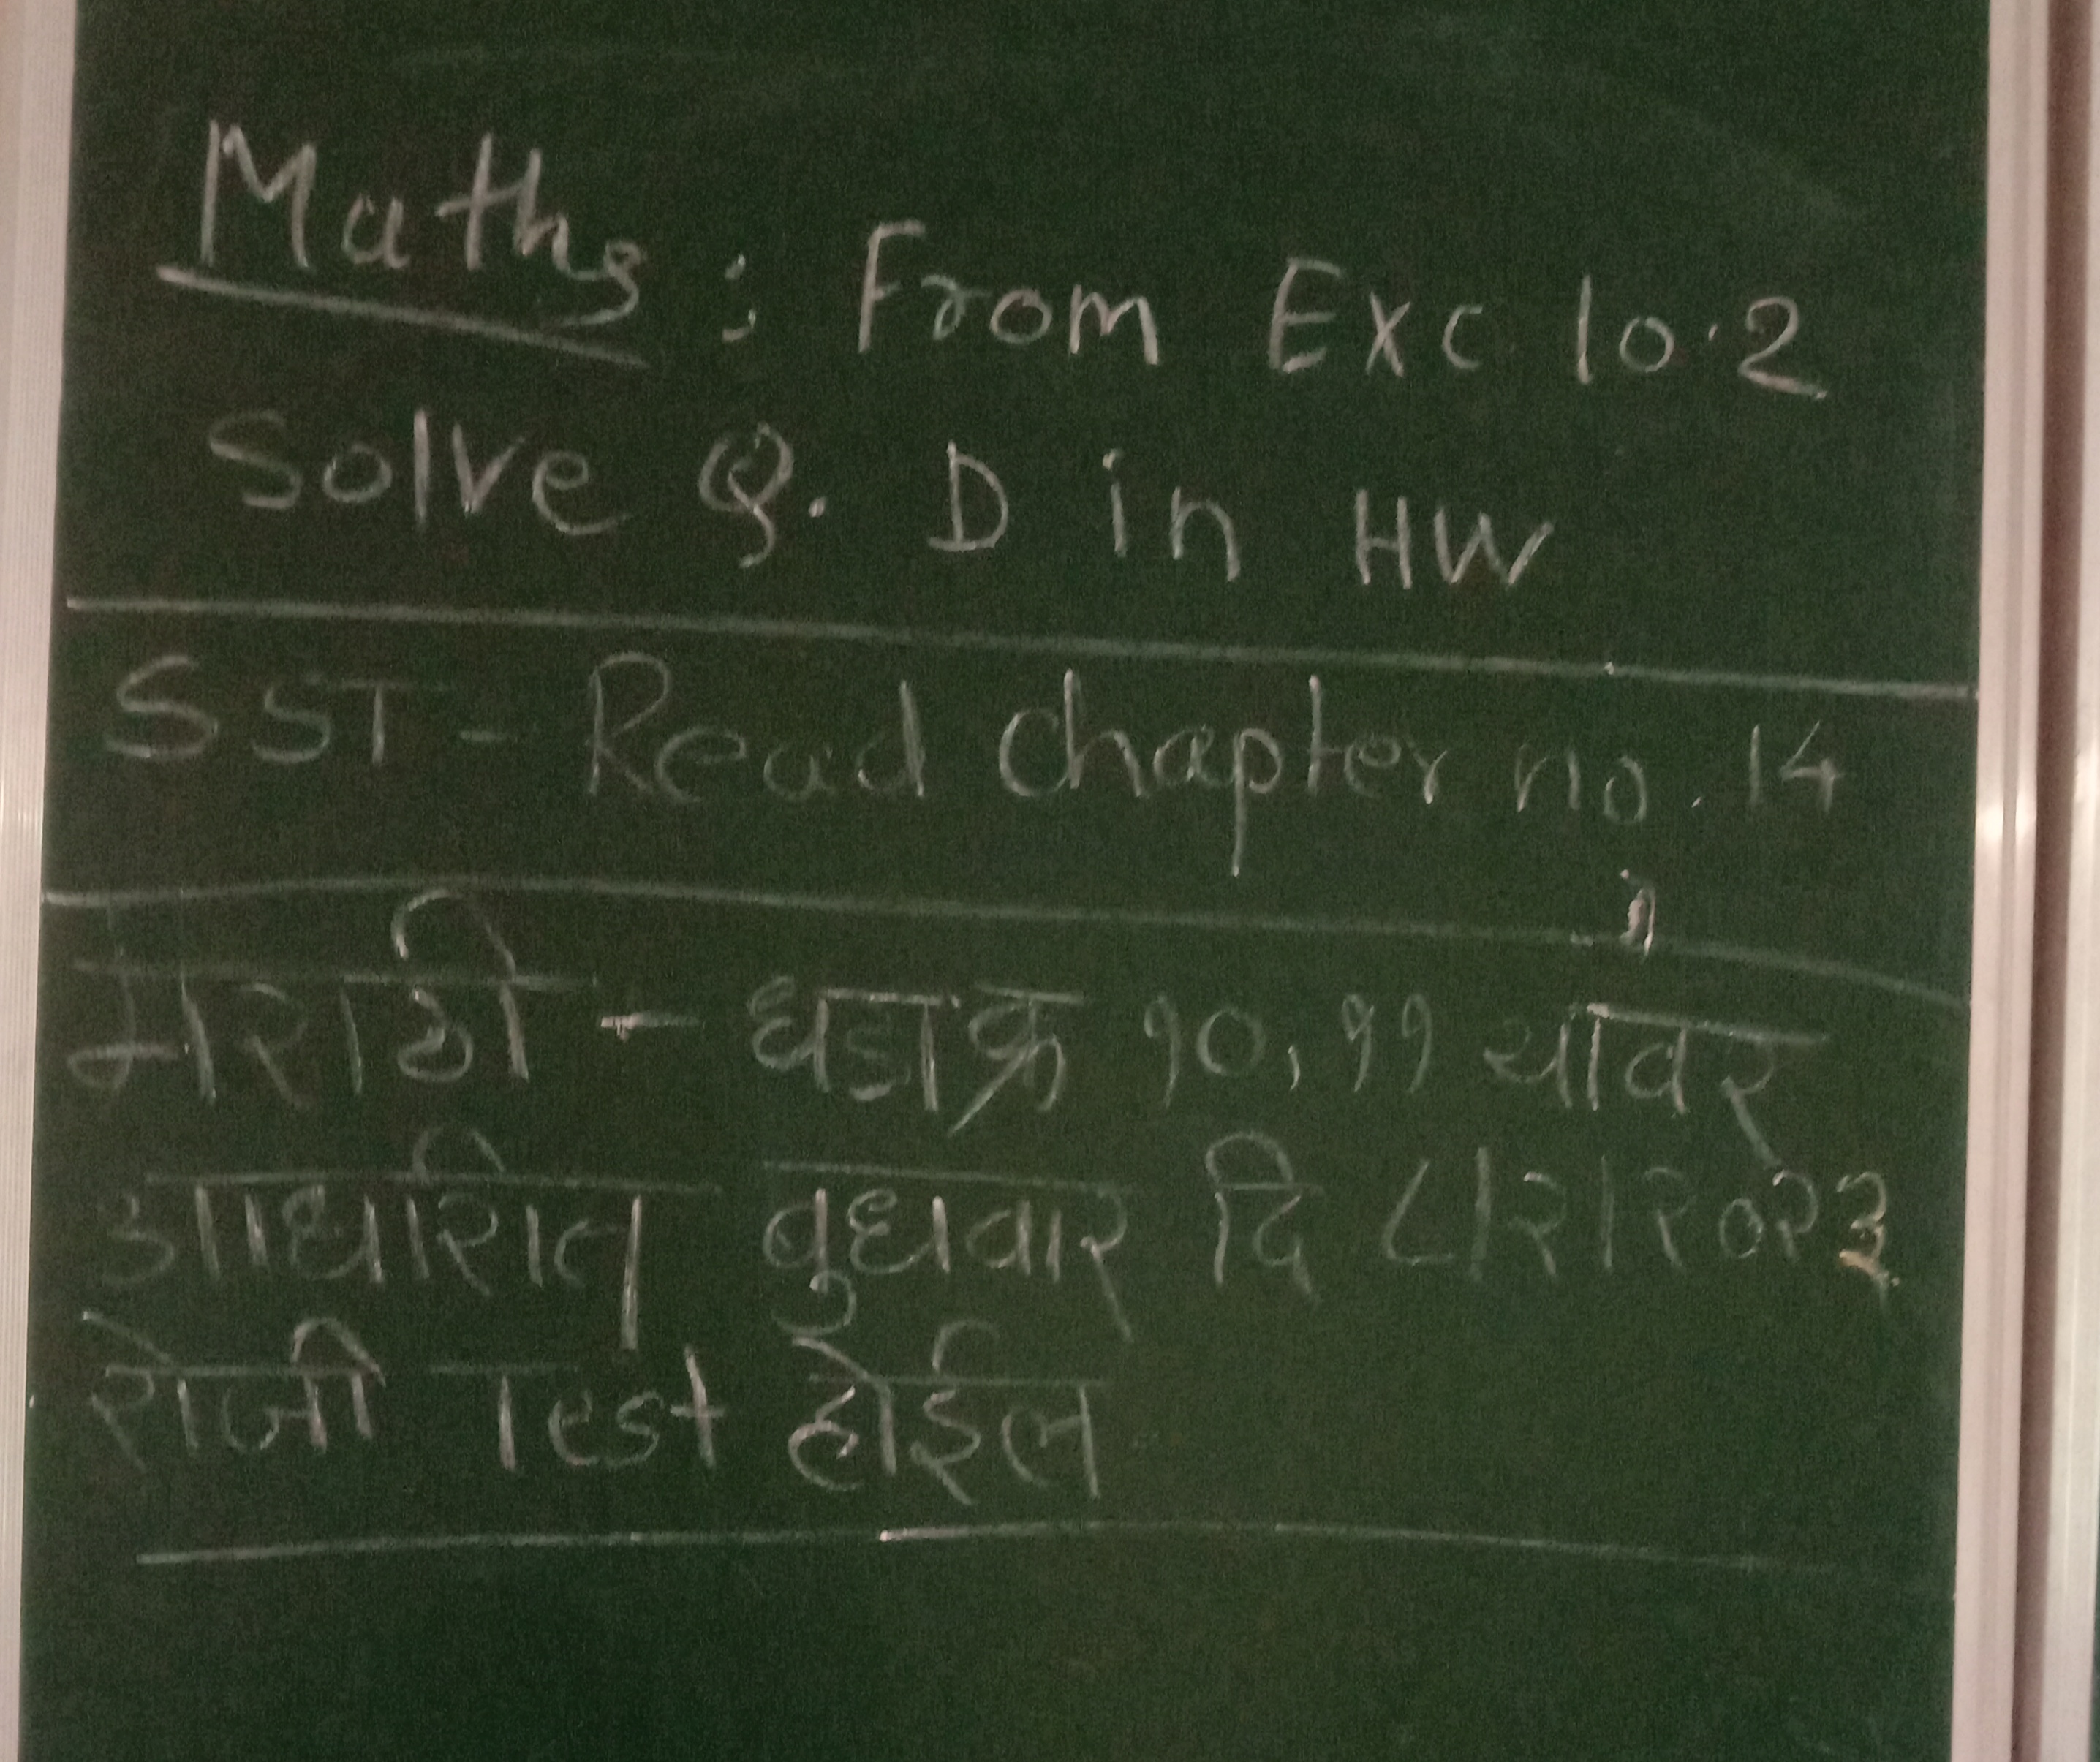 Maths : From Exc 10.2
Solve Q. D in HW
SST - Read chapter no. 14
मराठी - धडा क्र १०, ११ यांवर
आधारित बुधवार दि ८।२।२०२३
रोजी Test होईल